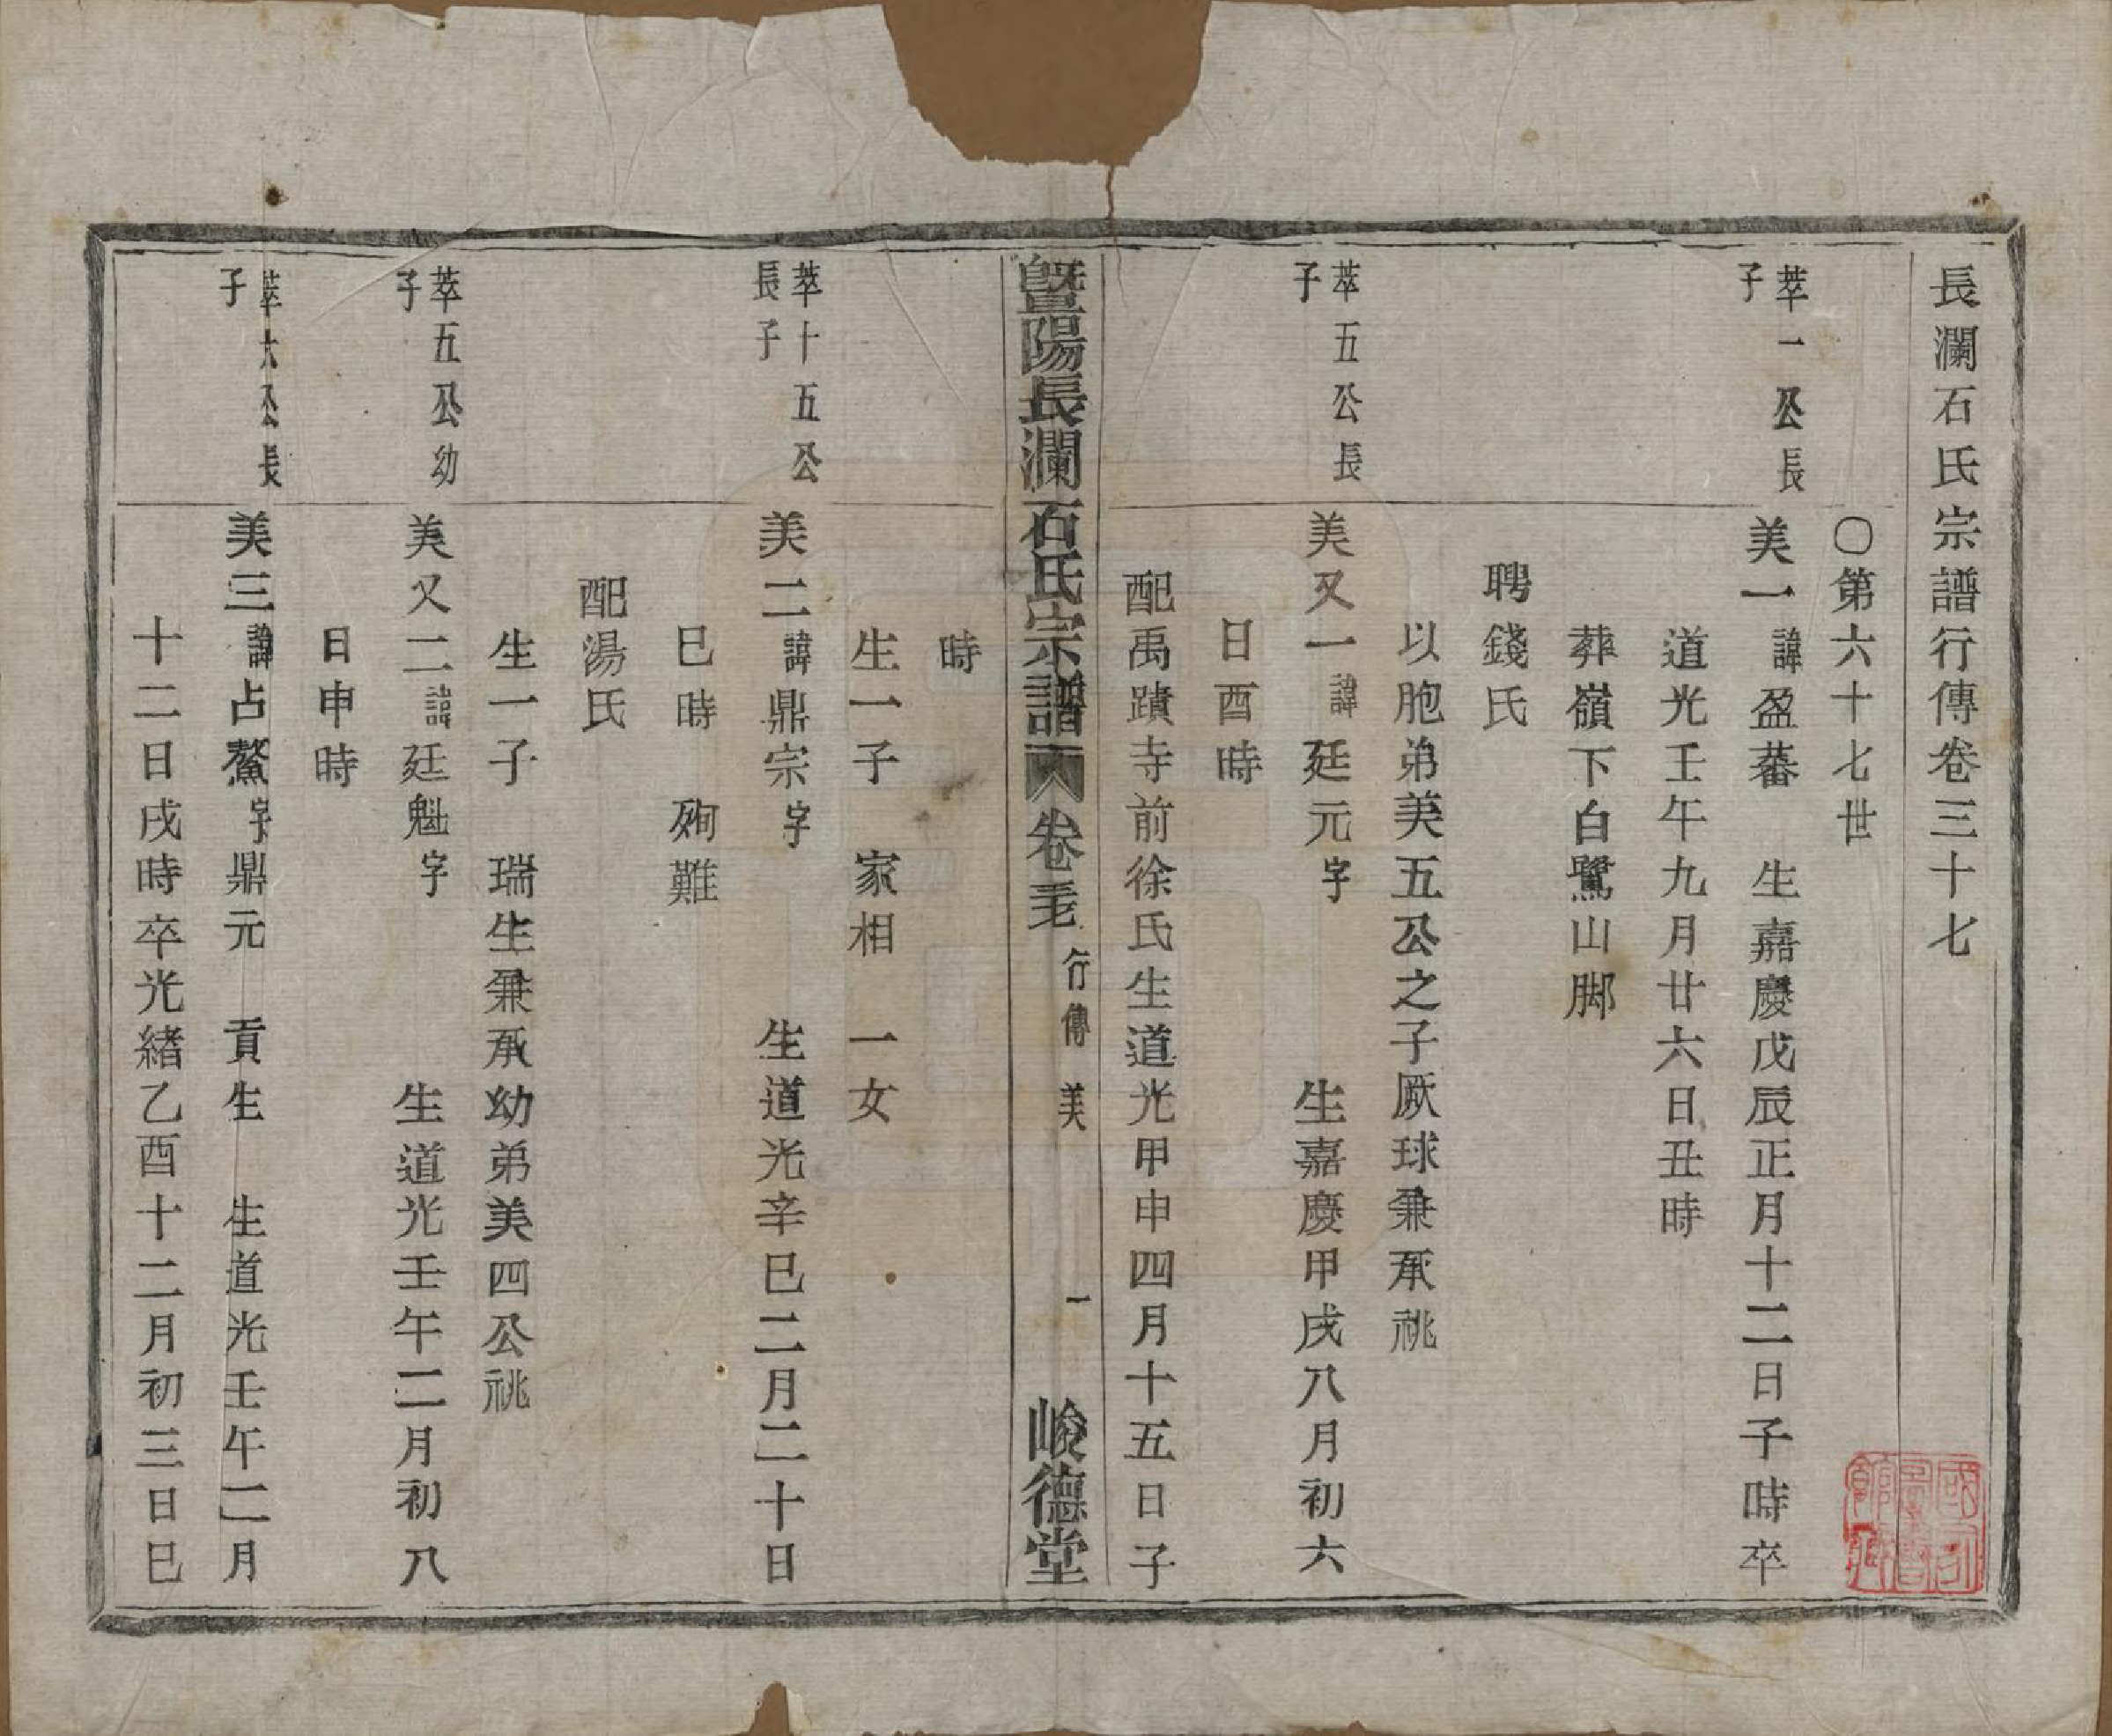 長瀾石氏宗譜行傳卷三十七
〇第六十七世
萃一公長子
美一諱盈蕃　生嘉慶戊辰正月十二日子時卒
道光壬午九月廿六日丑時
葬嶺下白鷺山脚
聘錢氏
以胞弟美五公之子厥球兼承祧
萃五公長子
美又一諱廷元字　生嘉慶甲戌八月初六
日酉時
配禹蹟寺前徐氏生道光甲申四月十五日子
暨陽長瀾石氏宗譜　卷三十七　行傳　美　一　峻德堂
時
生一子　家相　一女
萃十五公長子
美二諱鼎宗字　生道光辛巳二月二十日
巳時　殉難
配湯氏
生一子　瑞生兼承幼弟美四公祧
萃五公幼子
美又二諱廷魁字　生道光壬午二月初八
日申時
萃六公長子
美三諱占鰲字鼎元　貢生　生道光壬午二月
十二日戌時卒光緒乙酉十二月初三日巳